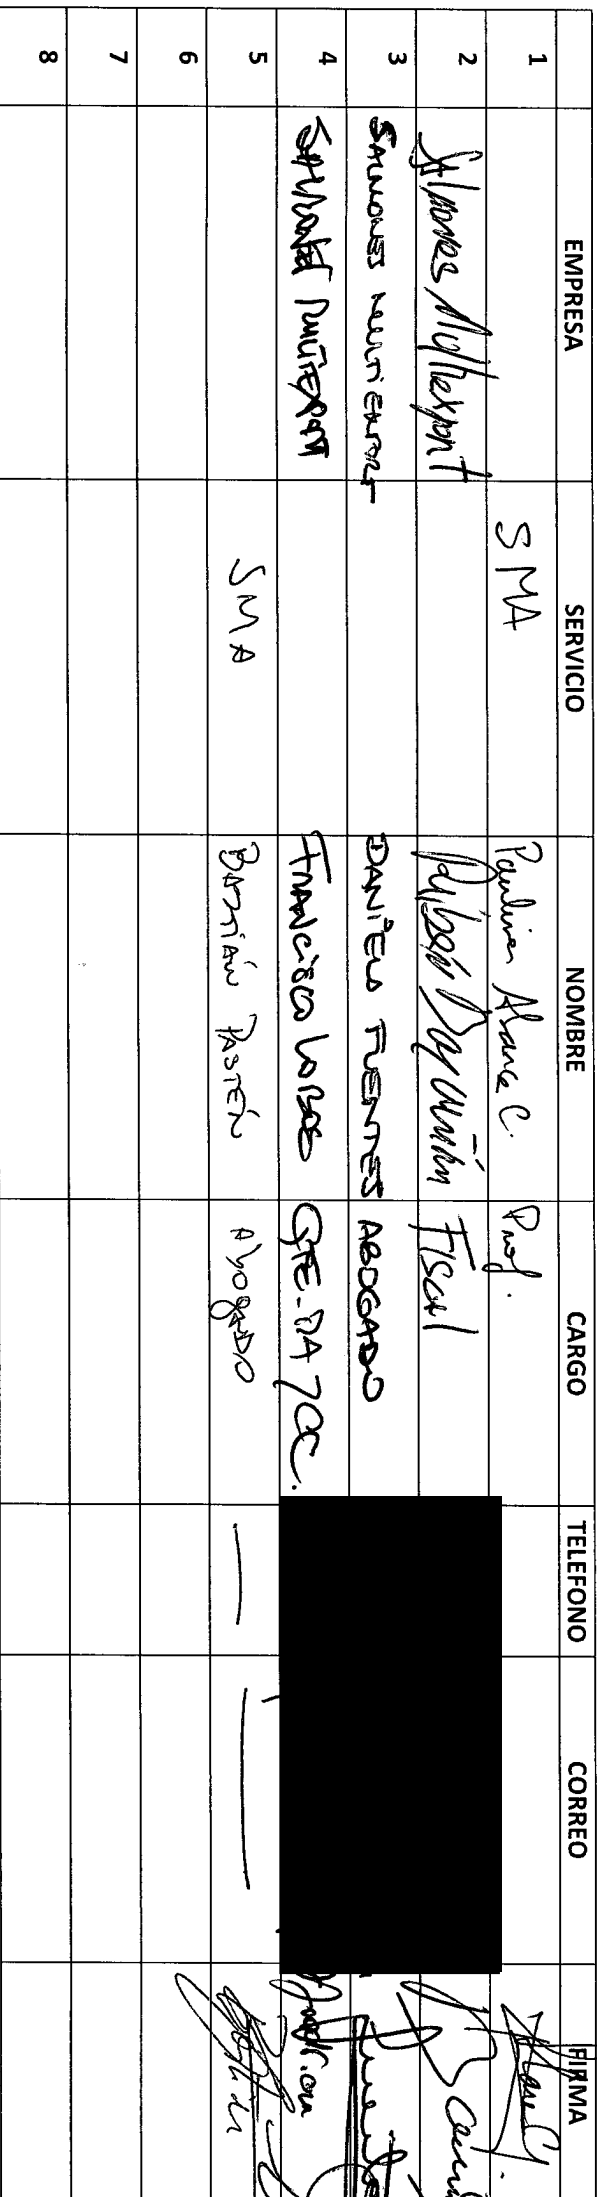 EMPRESA SERVICIO NOMBRE CARGO TELEFONO CORREO FIRMA
1 SMA Paulina Abarca C. Prof.
2 Salmones Multiexport Rubén Fiscal
3 SALMONES MULTIEXPORT DANIELA FUENTES ABOGADO
4 SALMONES MULTIEXPORT FRANCISCO LOBOS GTE.
5 SMA BASTIÁN PASTÉN Abogado
6
7
8